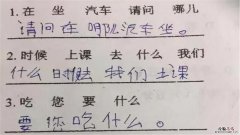 1. 在 坐 汽车 请问 哪儿
请问在哪儿汽车坐。
2. 时候 上课 去 什么 我们
什么时候去我们上课
3. 吃 您 要 什么
要您吃什么。